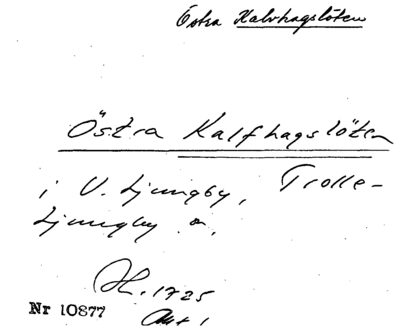 Östra Kalvhagslöten
Östra Kalfhagslöten
i V. Ljungby, Trolle-
Ljungby
H. 1725
Nr 10877
Akt 1